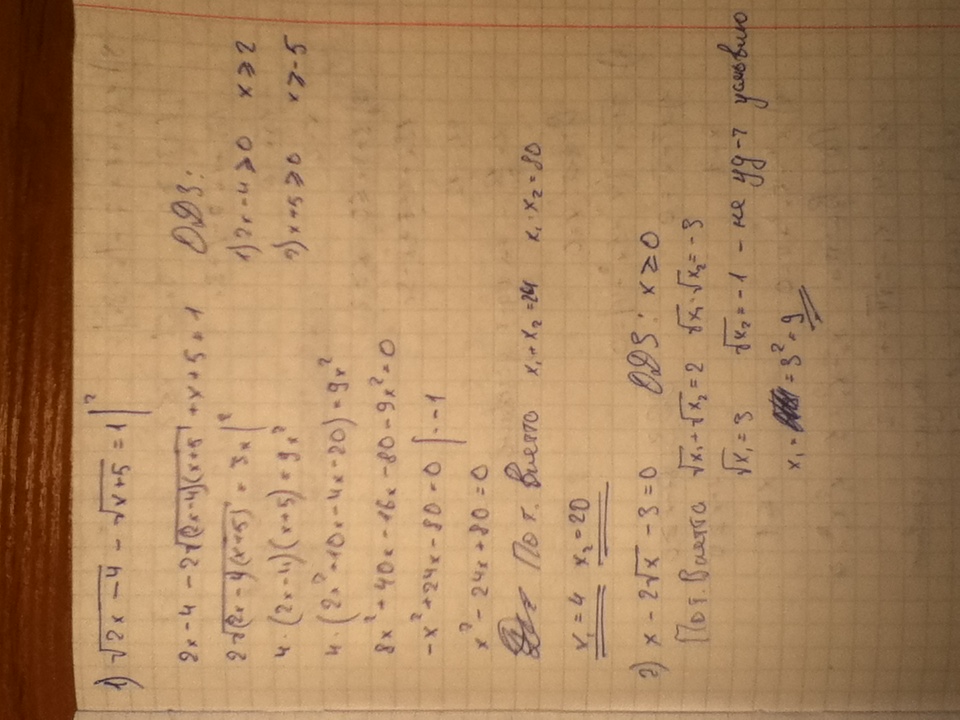 1) √(2x-4) - √(x+5) = 1 |²
2x-4 - 2√(2x-4)(x+5) + x+5 = 1
ОДЗ:
1) 2x-4 ⩾ 0 x ⩾ 2
2) x+5 ⩾ 0 x ⩾ -5
2√(2x-4)(x+5) = 3x |²
4·(2x-4)(x+5) = 9x²
4·(2x²+10x-4x-20) = 9x²
8x²+40x-16x-80-9x²=0
-x²+24x-80=0 |·-1
x²-24x+80=0
По т. Виета x₁+x₂=24 x₁·x₂=80
x₁=4 x₂=20
2) x-2√x-3=0 ОДЗ: x ⩾ 0
По т. Виета √x₁+√x₂=2 √x₁·√x₂=-3
√x₁=3 √x₂=-1 - не уд-т условию
x₁= =3²=9